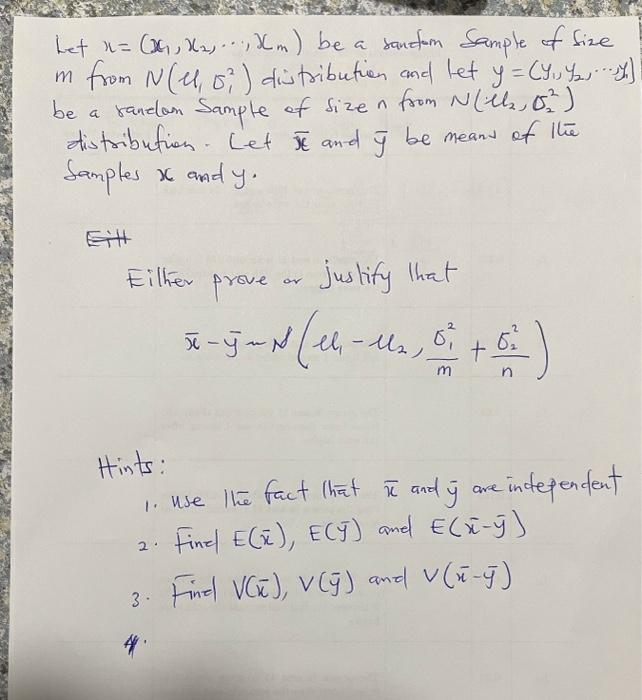 Let x = (x₁, x₂, ..., xₘ) be a random Sample of Size
m from N(μ₁, σ₁²) distribution and let y = (y₁, y₂, ... yₙ)
be a random Sample of size n from N(μ₂, σ₂²)
distribution. Let x̄ and ȳ be means of the
Samples x and y.
Either prove or justify that
x̄ - ȳ ~ N(μ₁ - μ₂, σ₁²/m + σ₂²/n)
Hints:
1. use the fact that x̄ and ȳ are independent
2. Find E(x̄), E(ȳ) and E(x̄-ȳ)
3. Find V(x̄), V(ȳ) and V(x̄-ȳ)